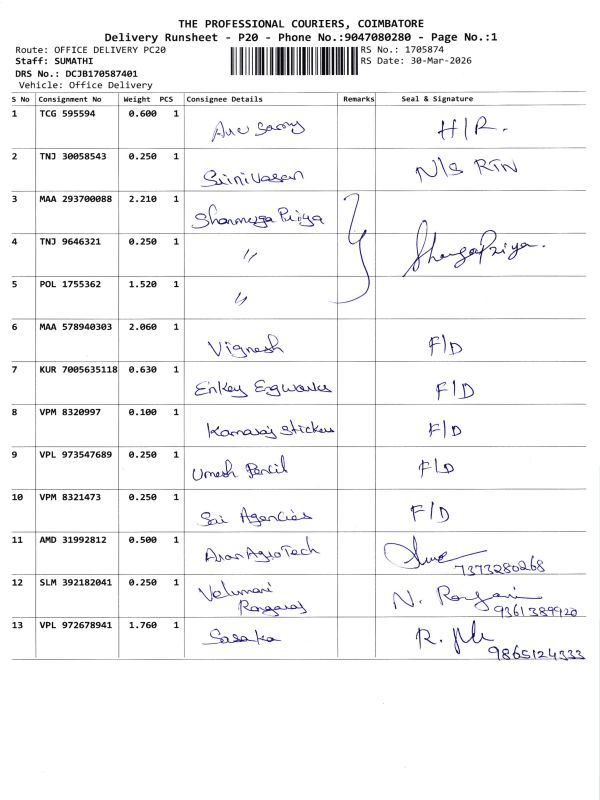 THE PROFESSIONAL COURIERS, COIMBATORE
Delivery Runsheet - P20 - Phone No.:9047080280 - Page No.:1
Route: OFFICE DELIVERY PC20 RS No.: 1705874
Staff: SUMATHI RS Date: 30-Mar-2026
DRS No.: DCJB170587401
Vehicle: Office Delivery
S No Consignment No Weight PCS Consignee Details Remarks Seal & Signature
1 TCG 595594 0.600 1 H/R.
2 TNJ 30058543 0.250 1 Srinivasan N/S RTN
3 MAA 293700088 2.210 1 Shanmuga Priya
4 TNJ 9646321 0.250 1 〃 ShangaPriya.
5 POL 1755362 1.520 1 〃
6 MAA 578940303 2.060 1 Vignesh F/D
7 KUR 7005635118 0.630 1 Enkey Engworks F/D
8 VPM 8320997 0.100 1 Kamaraj Stickers F/D
9 VPL 973547689 0.250 1 Umesh Pencil F/D
10 VPM 8321473 0.250 1 Sai Agencies F/D
11 AMD 31992812 0.500 1 Aran AgroTech 7373280268
12 SLM 392182041 0.250 1 Velumani Rangaraj N. Rangani 9361389920
13 VPL 972678941 1.760 1 Sasaka R. 9865124333